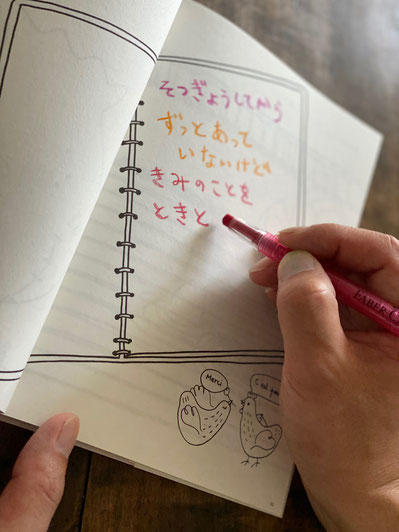 そつぎょうしてから
ずっとあって
いないけども
きみのことを
ときど
Merci
C'est pour
FABER-C